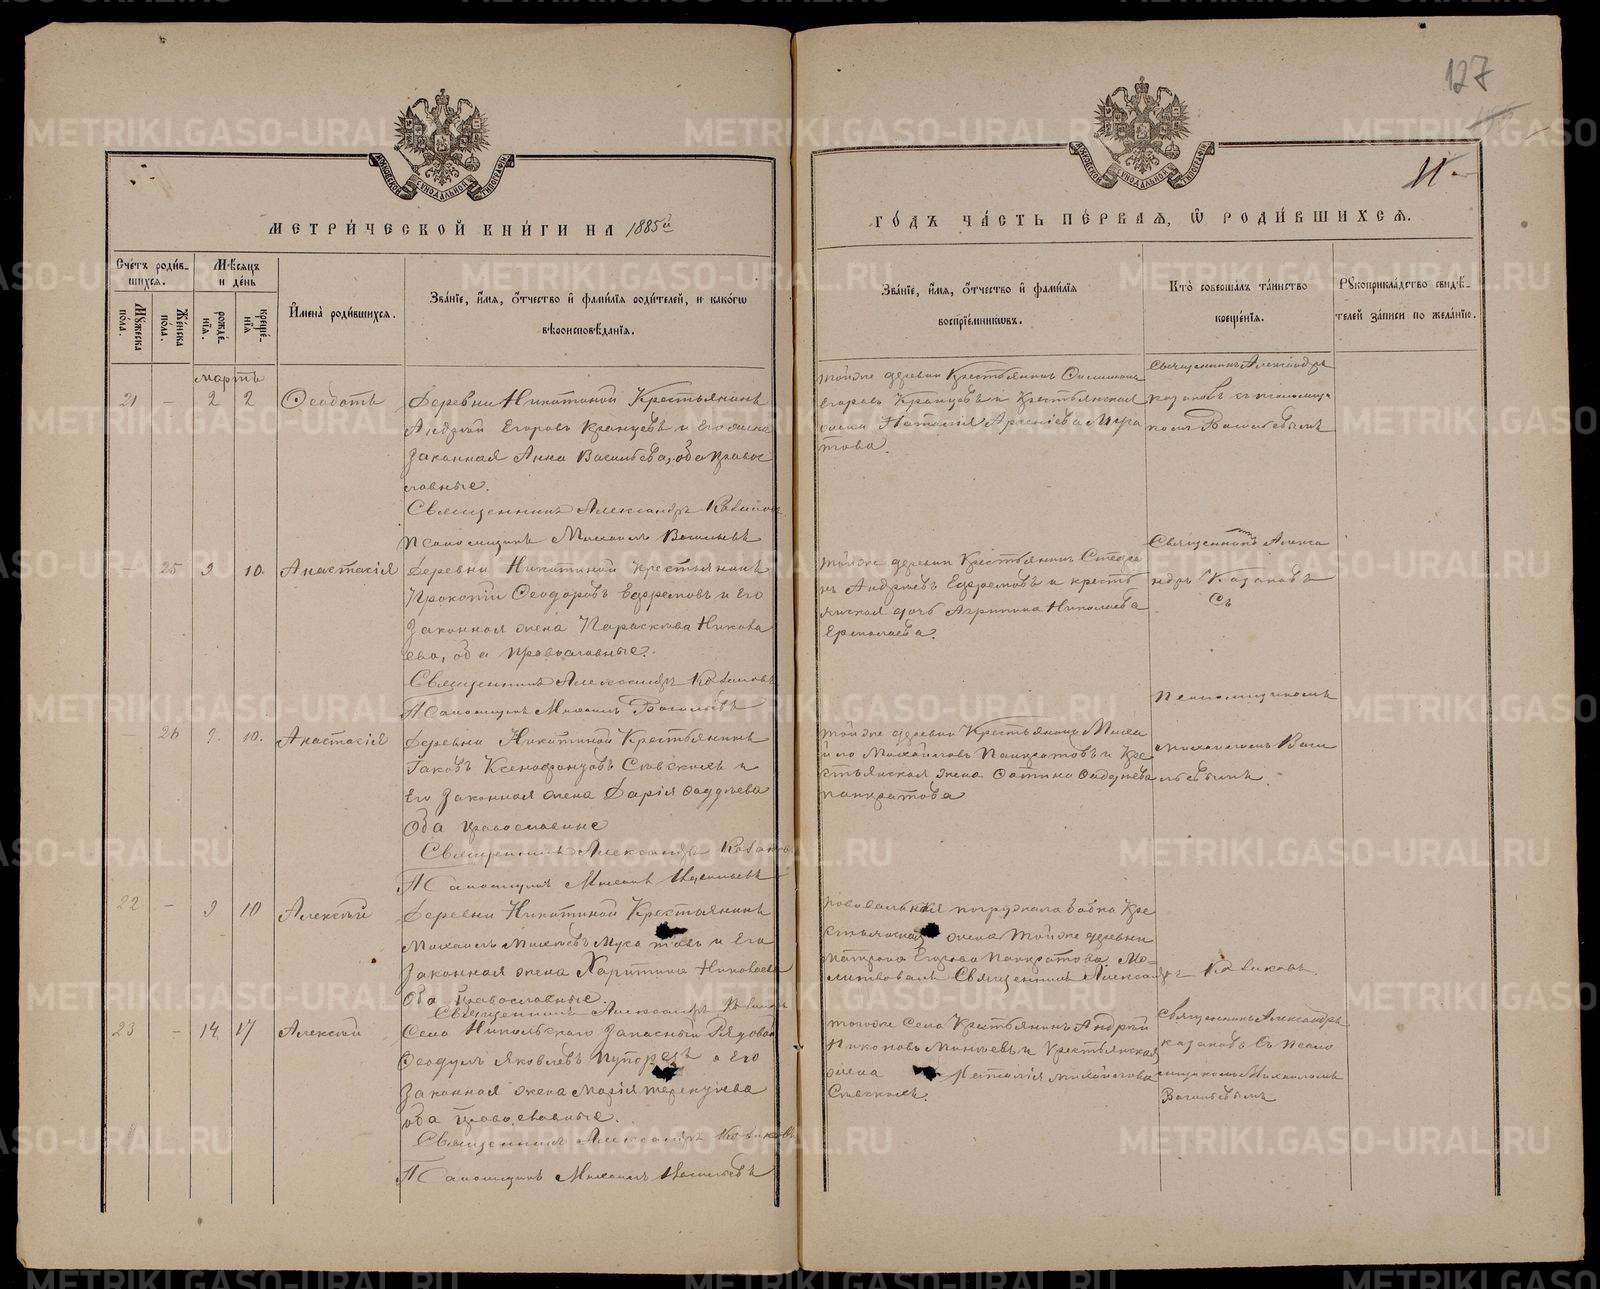 127
11
МЕТРИ́ЧЕСКОЙ КНИ́ГИ НА 1885й
ГО́ДЪ ЧА́СТЬ ПЕ́РВАЯ, Ѿ РОДИ́ВШИХСЯ.
Сче́тъ роди́в-
шихся.
Мѣ́сяцъ
и де́нь
Мꙋжеска
по́ла.
Же́нска
по́ла.
рожде́-
нїѧ.
креще́-
нїѧ
И́мена̀ роди́вшихся.
Зва́нїе, и́мѧ, ѻ́тчество и̑ фами́лїѧ роди́телей, и како́гѡ
вѣроисповѣ́данїѧ.
Зва́нїе, и́мѧ, ѻ́тчество и̑ фами́лїѧ
воспрїе́мникѡвъ.
Кто̀ соверша́лъ та́инство
креще́нїѧ.
Рꙋкоприкла́дство свидѣ́-
телей за́писи по жела́нїю.
мартъ
21 - 2 2 Ѳеодотъ
Деревни Никитиной Крестьянинъ
Андрей Егоровъ Кранцевъ и Его жена
Законная Анна Васильева, оба Правос
лавные.
Священникъ Александръ Казаковъ
Псаломщикъ Михаилъ Васильевъ
тойже деревни Крестьянинъ
Егоровъ Кранцевъ и Крестьянская
жена Наталия Арсениева Мура
това.
Священникъ Александръ
Казаковъ съ псаломщи
комъ Васильевымъ
- 25 9 10. Анастасия
Деревни Никитиной крестьянинъ
Прокопий Ѳеодоровъ Ефремовъ и Его
Законная жена Параскева Никола
ева, оба православные.
Священникъ Александръ Казаковъ
Псаломщикъ Михаилъ Васильевъ
тойже деревни Крестьянинъ Стефа
нъ Андреевъ Ефремовъ и кресть
янская дочь Агрипина Николаева
Ермолаева.
Священникъ Алекса
ндръ Казаковъ
Съ
- 26 9. 10. Анастасия
Деревни Никитиной Крестьянинъ
Iаковъ Ксенофонтовъ и
Его Законная жена Дария Фаддѣева
Оба православные
Священникъ Александръ Казаковъ
Псаломщикъ Михаилъ Васильевъ
тойже деревни Крестьянинъ
Михайловъ Панкратовъ и Кре
стьянская жена Фаддѣева
панкратова
Псаломщикомъ
Михаиломъ Васи
льевымъ
22 - 9 10 Алексѣй
Деревни Никитиной Крестьянинъ
Михаилъ Муратовъ и Его
Законная жена Харитина Николаева
Оба православные.
Священникъ Александръ Казаковъ
повивальная погружала бабка Кре
стьянская жена тойже деревни
Матрона Егорова Панкратова. Мо-
литвовалъ Священникъ Александръ Казаковъ.
23 - 14 17 Алексѣй
Села Никольскаго Запасный Рядовой
Ѳеодулъ Яковлевъ и Его
Законная жена Мария
оба православные.
Священникъ Александръ Казаковъ
Псаломщикъ Михаилъ Васильевъ
тогоже Села Крестьянинъ Андрей
и Крестьянская
жена Наталия Михайлова
Священникъ Александръ
Казаковъ Съ Псало
мщикомъ Михаиломъ
Васильевымъ